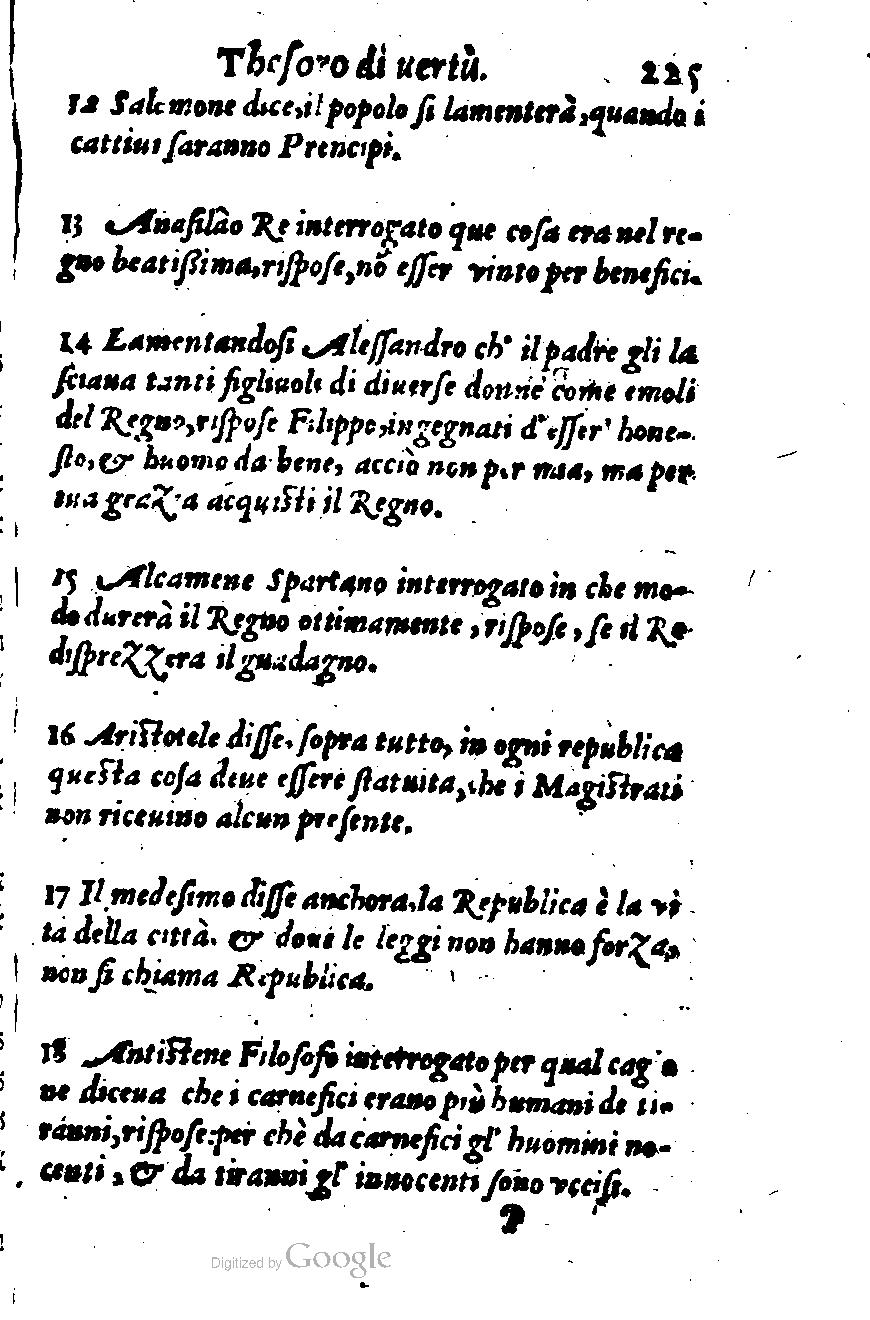 Theſoro di uertù. 225
12 Salomone dice, il popolo ſi lamenterà, quando i
cattiui ſaranno Prencipi.
13 Anaſilao Re interrogato que coſa era nel re-
gno beatiſſima, riſpoſe, nõ eſſer vinto per benefici.
14 Lamentandoſi Aleſſandro ch' il padre gli la
ſciaua tanti figliuoli di diuerſe donne come emoli
del Regno, riſpoſe Filippo, ingegnati d'eſſer' hone-
ſto, & huomo da bene, acciò non per mia, ma per
tua grazia acquiſti il Regno.
15 Alcamene Spartano interrogato in che mo-
do durerà il Regno ottimamente, riſpoſe, ſe il Re
diſprezzera il guadagno.
16 Ariſtotele diſſe, ſopra tutto, in ogni republica
queſta coſa deue eſſere ſtatuita, che i Magiſtrati
non riceuino alcun preſente.
17 Il medeſimo diſſe anchora, la Republica è la vi
ta della città, & doue le leggi non hanno forza,
non ſi chiama Republica.
18 Antiſtene Filoſofo interrogato per qual cagio
ne diceua che i carnefici erano più humani de ti-
ranni, riſpoſe: per chè da carnefici gl' huomini no-
centi, & da tiranni gl' innocenti ſono vcciſi.
P
Digitized by Google